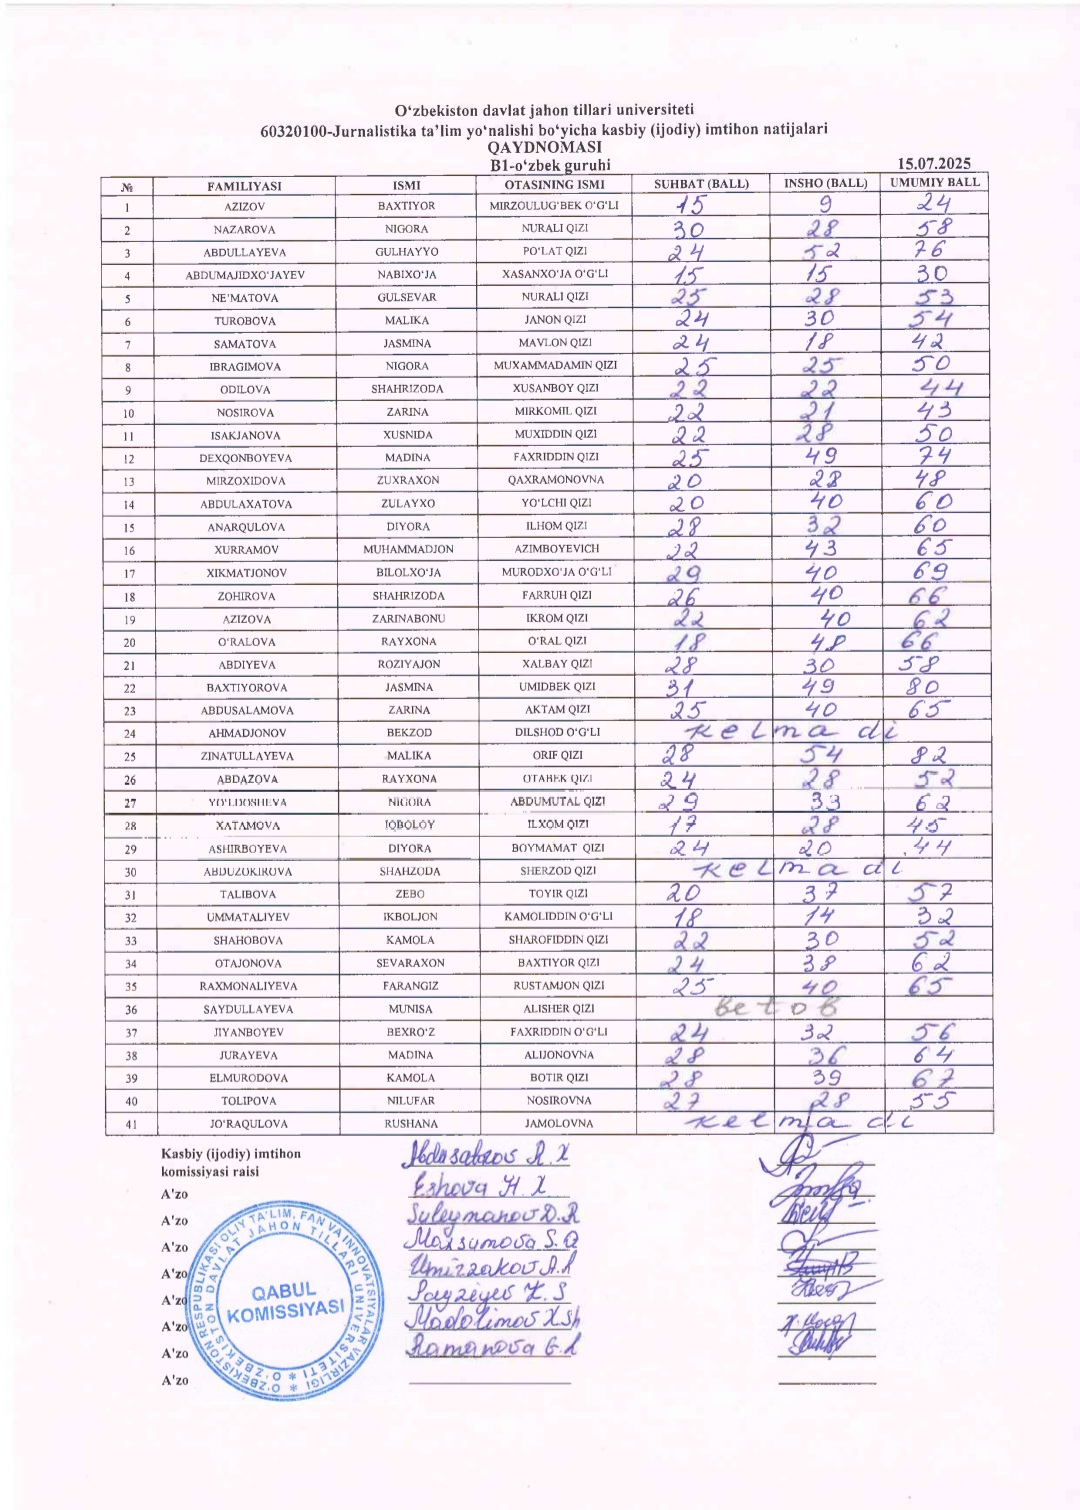 O‘zbekiston davlat jahon tillari universiteti
60320100-Jurnalistika ta’lim yo‘nalishi bo‘yicha kasbiy (ijodiy) imtihon natijalari
QAYDNOMASI
B1-o‘zbek guruhi 15.07.2025
№ FAMILIYASI ISMI OTASINING ISMI SUHBAT (BALL) INSHO (BALL) UMUMIY BALL
1 AZIZOV BAXTIYOR MIRZOULUG‘BEK O‘G‘LI 15 9 24
2 NAZAROVA NIGORA NURALI QIZI 30 28 58
3 ABDULLAYEVA GULHAYYO PO‘LAT QIZI 24 52 76
4 ABDUMAJIDXO‘JAYEV NABIXO‘JA XASANXO‘JA O‘G‘LI 15 15 30
5 NE’MATOVA GULSEVAR NURALI QIZI 25 28 53
6 TUROBOVA MALIKA JANON QIZI 24 30 54
7 SAMATOVA JASMINA MAVLON QIZI 24 18 42
8 IBRAGIMOVA NIGORA MUXAMMADAMIN QIZI 25 25 50
9 ODILOVA SHAHRIZODA XUSANBOY QIZI 22 22 44
10 NOSIROVA ZARINA MIRKOMIL QIZI 22 21 43
11 ISAKJANOVA XUSNIDA MUXIDDIN QIZI 22 28 50
12 DEXQONBOYEVA MADINA FAXRIDDIN QIZI 25 49 74
13 MIRZOXIDOVA ZUXRAXON QAXRAMONOVNA 20 28 48
14 ABDULAXATOVA ZULAYXO YO‘LCHI QIZI 20 40 60
15 ANARQULOVA DIYORA ILHOM QIZI 28 32 60
16 XURRAMOV MUHAMMADJON AZIMBOYEVICH 22 43 65
17 XIKMATJONOV BILOLXO‘JA MURODXO‘JA O‘G‘LI 29 40 69
18 ZOHIROVA SHAHRIZODA FARRUH QIZI 26 40 66
19 AZIZOVA ZARINABONU IKROM QIZI 22 40 62
20 O‘RALOVA RAYXONA O‘RAL QIZI 18 48 66
21 ABDIYEVA ROZIYAJON XALBAY QIZI 28 30 58
22 BAXTIYOROVA JASMINA UMIDBEK QIZI 31 49 80
23 ABDUSALAMOVA ZARINA AKTAM QIZI 25 40 65
24 AHMADJONOV BEKZOD DILSHOD O‘G‘LI kelmadi
25 ZINATULLAYEVA MALIKA ORIF QIZI 28 54 82
26 ABDAZOVA RAYXONA OTABEK QIZI 24 28 52
27 YO‘LDOSHEVA NIGORA ABDUMUTAL QIZI 29 33 62
28 XATAMOVA IQBOLOY ILXOM QIZI 17 28 45
29 ASHIRBOYEVA DIYORA BOYMAMAT QIZI 24 20 44
30 ABDUZOKIROVA SHAHZODA SHERZOD QIZI kelmadi
31 TALIBOVA ZEBO TOYIR QIZI 20 37 57
32 UMMATALIYEV IKBOLJON KAMOLIDDIN O‘G‘LI 18 14 32
33 SHAHOBOVA KAMOLA SHAROFIDDIN QIZI 22 30 52
34 OTAJONOVA SEVARAXON BAXTIYOR QIZI 24 38 62
35 RAXMONALIYEVA FARANGIZ RUSTAMJON QIZI 25 40 65
36 SAYDULLAYEVA MUNISA ALISHER QIZI betob
37 JIYANBOYEV BEXRO‘Z FAXRIDDIN O‘G‘LI 24 32 56
38 JURAYEVA MADINA ALIJONOVNA 28 36 64
39 ELMURODOVA KAMOLA BOTIR QIZI 28 39 67
40 TOLIPOVA NILUFAR NOSIROVNA 27 28 55
41 JO‘RAQULOVA RUSHANA JAMOLOVNA kelmadi
Kasbiy (ijodiy) imtihon
komissiyasi raisi Abdusattarov R. X
A'zo Eshova H. X
A'zo Suleymanov D. R
A'zo Maxsumova S. A
A'zo Umirzakov A. R
A'zo
A'zo Madolimov X.Sh
A'zo Ramanova G. R
A'zo
O‘ZBEKISTON RESPUBLIKASI OLIY TA’LIM, FAN VA INNOVATSIYALAR VAZIRLIGI
O‘ZBEKISTON DAVLAT JAHON TILLARI UNIVERSITETI
QABUL
KOMISSIYASI